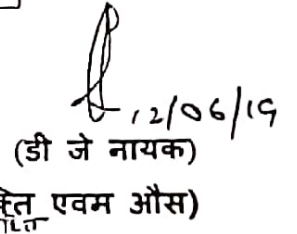 12/06/19
(डी जे नायक)
क्ति एवम औस)